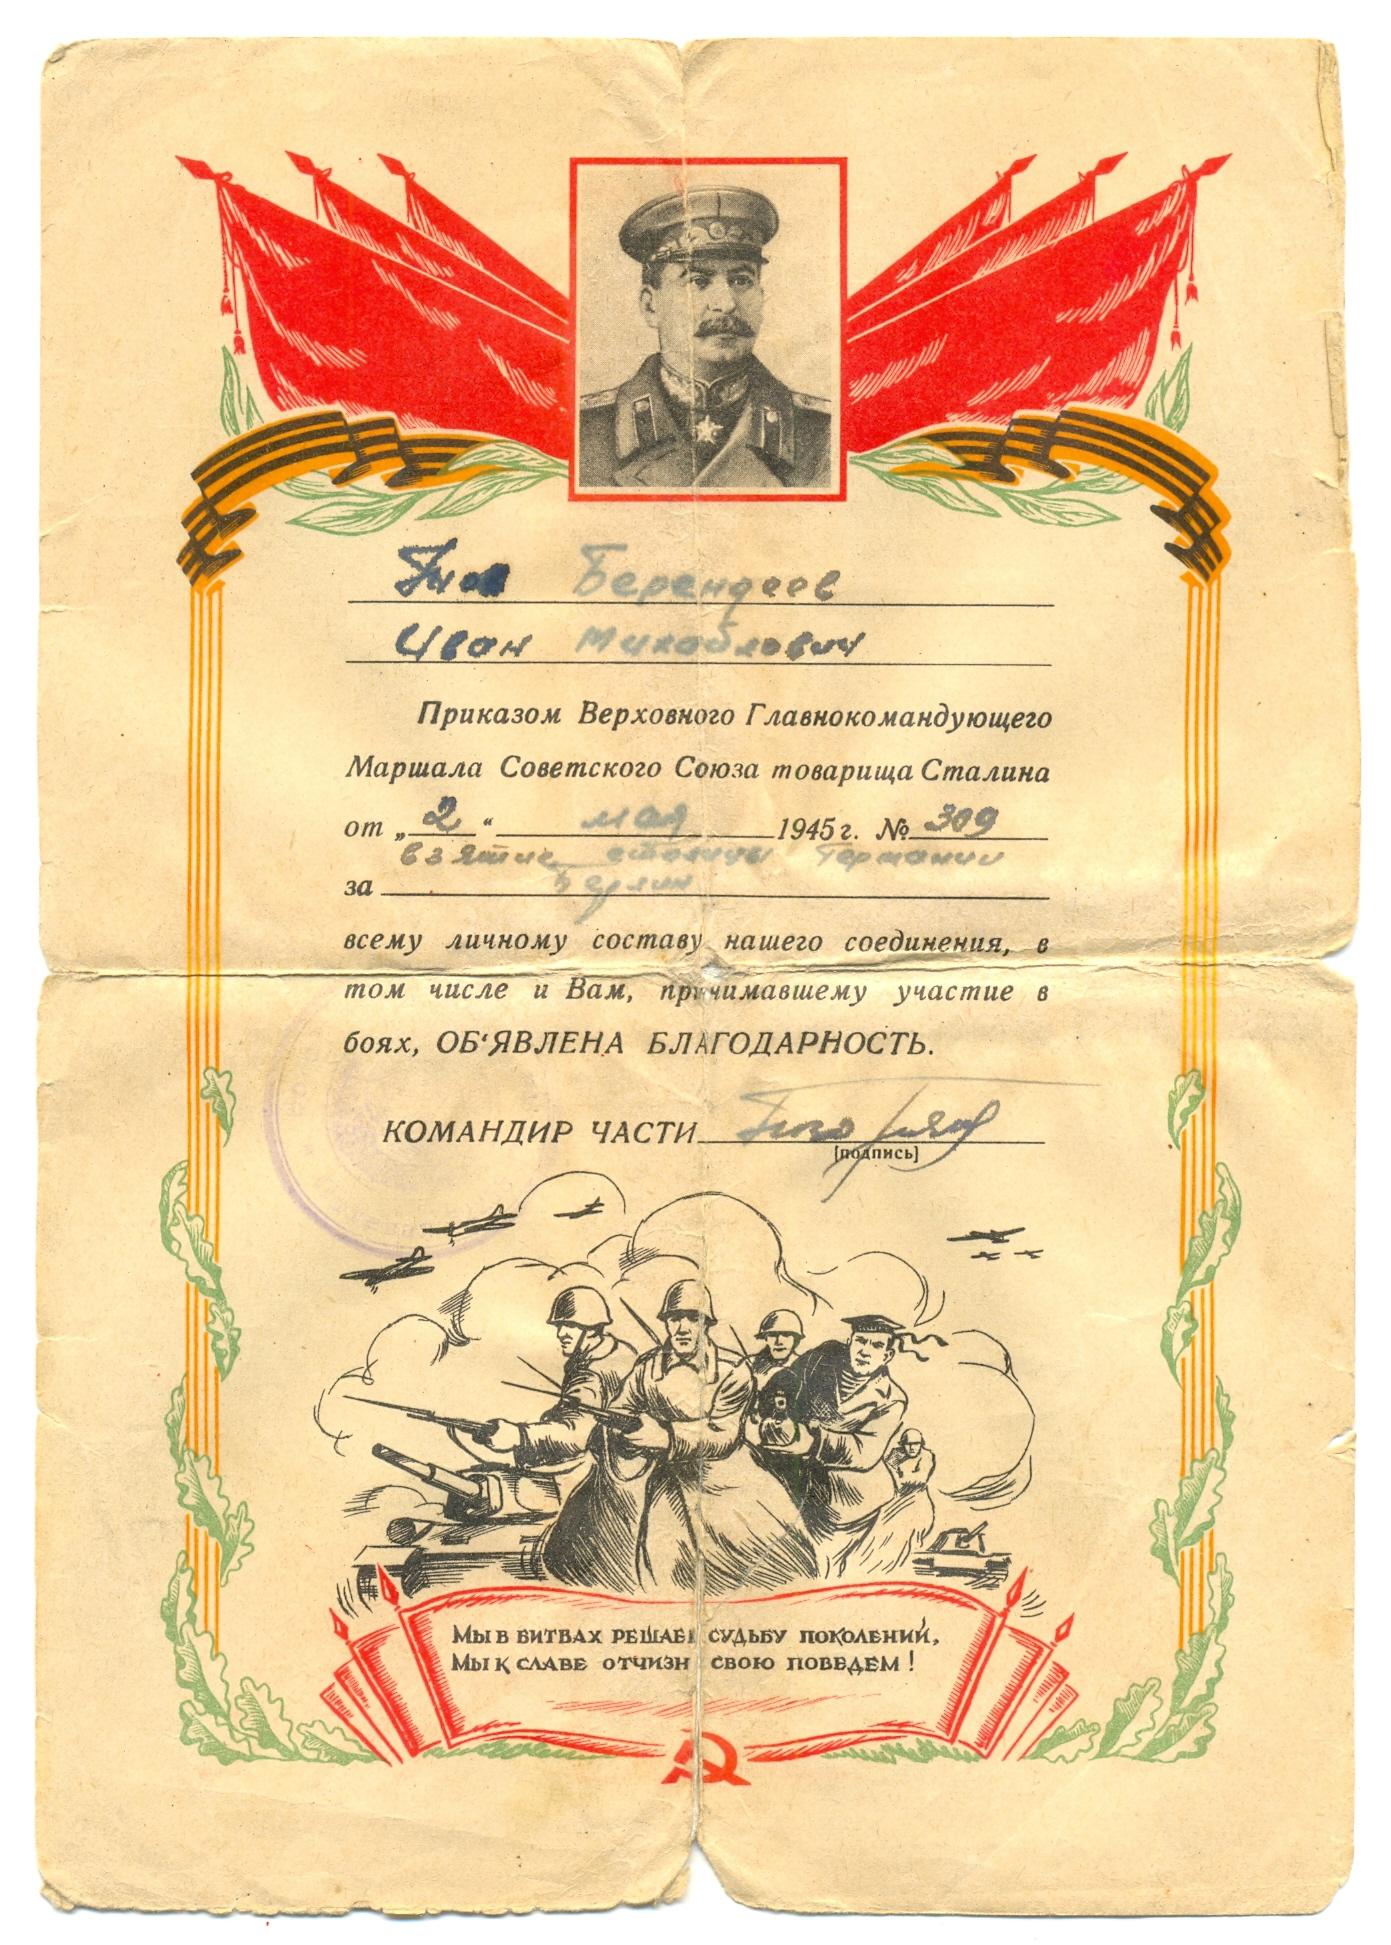 Берендеев
Иван Михайлович
Приказом Верховного Главнокомандующего
Маршала Советского Союза товарища Сталина
от „2“ мая 1945 г. № 309
взятие столицы Германии
за Берлин
всему личному составу нашего соединения, в
том числе и Вам, принимавшему участие в
боях, ОБ‘ЯВЛЕНА БЛАГОДАРНОСТЬ.
КОМАНДИР ЧАСТИ
[подпись]
МЫ В БИТВАХ РЕШАЕМ СУДЬБУ ПОКОЛЕНИЙ,
МЫ К СЛАВЕ ОТЧИЗН СВОЮ ПОВЕДЕМ!